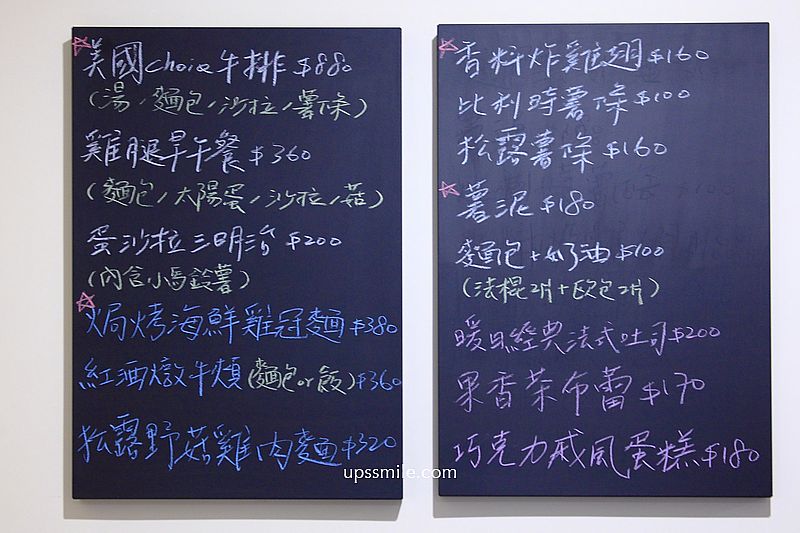 美國choice牛排 $880
(湯/麵包/沙拉/薯條)
雞腿早午餐 $360
(麵包/太陽蛋/沙拉/菇)
蛋沙拉三明治 $200
(內含小馬鈴薯)
焗烤海鮮雞冠麵 $380
紅酒燉牛頰(麵包or飯) $360
松露野菇雞肉麵 $320
香料炸雞翅 $160
比利時薯條 $100
松露薯條 $160
薯泥 $180
麵包+奶油 $100
(法棍2片+歐包2片)
暖日經典法式吐司 $200
果香茶布蕾 $170
巧克力戚風蛋糕 $180
upssmile.com